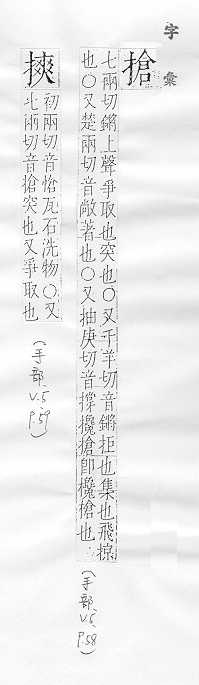 字彙
搶
七兩切鏘上聲爭取也突也〇又千羊切音鏘拒也集也飛掠
也〇又楚兩切音敞著也〇又抽庚切音撑攙搶卽欃槍也
(手部、V.5、P.58)
摤
初兩切音愴瓦石洗物〇又
七兩切音搶突也又爭取也
(手部、V.5、P.59)